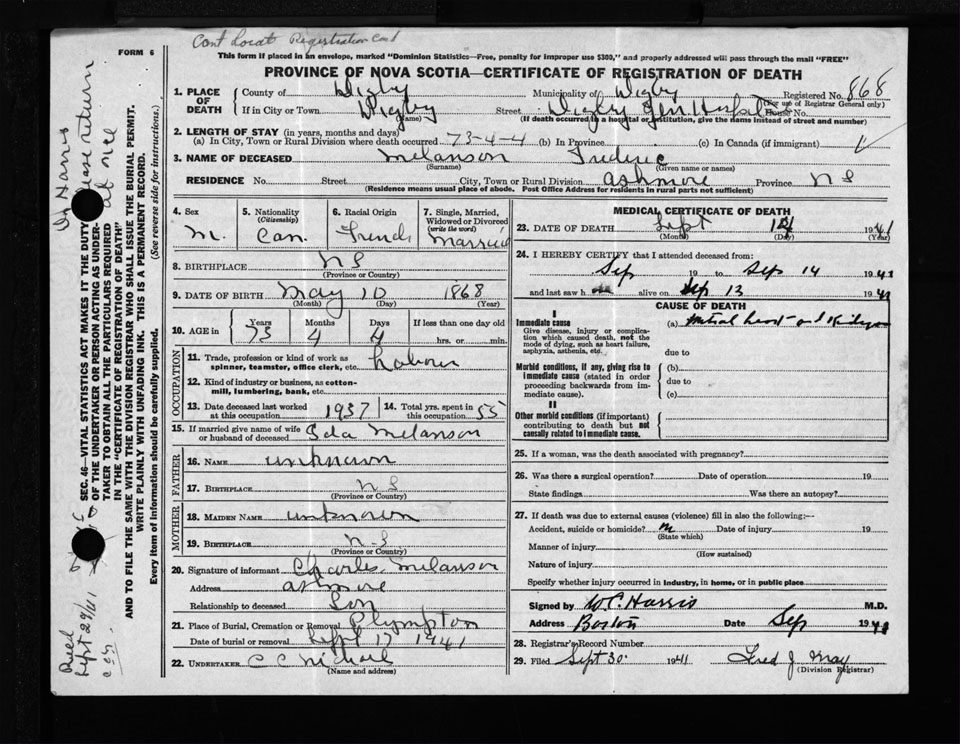 Cont Locat Registration Card
FORM 6
This form if placed in an envelope, marked "Dominion Statistics—Free, penalty for improper use $300," and properly addressed will pass through the mail "FREE"
PROVINCE OF NOVA SCOTIA—CERTIFICATE OF REGISTRATION OF DEATH
1. PLACE OF DEATH
County of Digby Municipality of Digby Registered No. 868
(For use of Registrar General only)
If in City or Town Digby Street Digby Gen Hospital House No.
(Name) (If death occurred in a hospital or institution, give the name instead of street and number)
2. LENGTH OF STAY (in years, months and days)
(a) In City, Town or Rural Division where death occurred 73-4-4 (b) In Province (c) In Canada (if immigrant)
3. NAME OF DECEASED Melanson Frederic
(Surname) (Given name or names)
RESIDENCE No. Street City, Town or Rural Division Ashmore Province N S
(Residence means usual place of abode. Post Office Address for residents in rural parts not sufficient)
4. Sex M.
5. Nationality (Citizenship) Can.
6. Racial Origin French
7. Single, Married, Widowed or Divorced (write the word) Married
8. BIRTHPLACE N S
(Province or Country)
9. DATE OF BIRTH May 10 1868
(Month) (Day) (Year)
10. AGE in Years Months Days If less than one day old
73 4 4 hrs. or min.
OCCUPATION
11. Trade, profession or kind of work as spinner, teamster, office clerk, etc.
12. Kind of industry or business, as cotton-mill, lumbering, bank, etc.
13. Date deceased last worked at this occupation 1937
14. Total yrs. spent in this occupation 55
15. If married give name of wife or husband of deceased Ida Melanson
FATHER
16. NAME unknown
17. BIRTHPLACE N S
(Province or Country)
MOTHER
18. MAIDEN NAME unknown
19. BIRTHPLACE N.S
(Province or Country)
20. Signature of informant Charles Melanson
Address Ashmore
Relationship to deceased Son
21. Place of Burial, Cremation or Removal Plympton
Date of burial or removal Sept 17 1941
22. UNDERTAKER C C
(Name and address)
MEDICAL CERTIFICATE OF DEATH
23. DATE OF DEATH Sept 14 1941
(Month) (Day) (Year)
24. I HEREBY CERTIFY that I attended deceased from:
Sep 19 to Sep 14 1941
and last saw h alive on Sep 13 1941
CAUSE OF DEATH
I
Immediate cause (a) Mitral heart and Kidney
Give disease, injury or complication which caused death, not the mode of dying, such as heart failure, asphyxia, asthenia, etc.
due to
Morbid conditions, if any, giving rise to immediate cause (stated in order proceeding backwards from immediate cause).
(b)
due to
(c)
II
Other morbid conditions (if important) contributing to death but not causally related to immediate cause.
25. If a woman, was the death associated with pregnancy?
26. Was there a surgical operation? Date of operation 19
State findings Was there an autopsy?
27. If death was due to external causes (violence) fill in also the following:—
Accident, suicide or homicide? Date of injury 19
(State which)
Manner of injury
(How sustained)
Nature of injury
Specify whether injury occurred in industry, in home, or in public place
Signed by W.C. Harris M.D.
Address Date Sep 1941
28. Registrar's Record Number
29. Filed Sept 30 1941 Fred J May
(Division Registrar)
SEC. 46—VITAL STATISTICS ACT MAKES IT THE DUTY
OF THE UNDERTAKER OR PERSON ACTING AS UNDER-
TAKER TO OBTAIN ALL THE PARTICULARS REQUIRED
IN THE "CERTIFICATE OF REGISTRATION OF DEATH"
AND TO FILE THE SAME WITH THE DIVISION REGISTRAR WHO SHALL ISSUE THE BURIAL PERMIT.
WRITE PLAINLY WITH UNFADING INK. THIS IS A PERMANENT RECORD.
Every item of information should be carefully supplied. (See reverse side for instructions.)
Dr Harris
Please return
at once
Sept 29/41